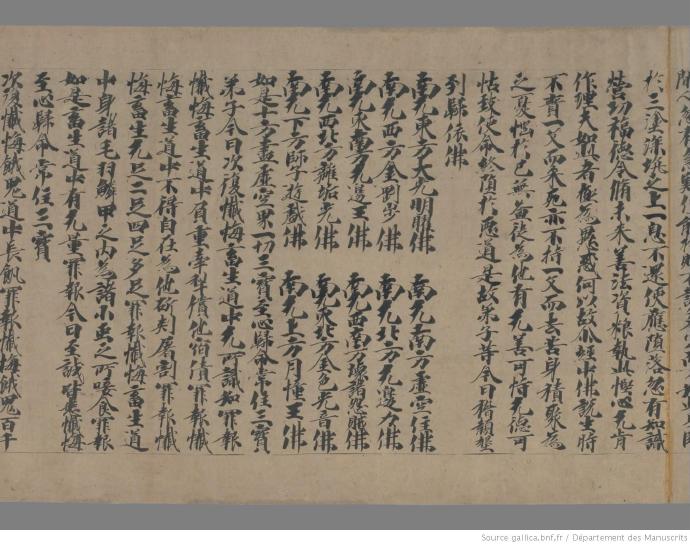 於三塗深坑之上一息不還便應墮落忽有知識
營功福德令脩未來善法資粮執此慳心无肯
作理夫如此者極為愚惑何以故尒經中佛說生時
不賷一文而來死亦不持一文而去苦身積聚為
之憂惱於己無益徒為他有无善可恃无德可
怙致使命終墮於惡道是故弟子等今日稽顙懇
到歸依佛
南无東方大光明曜佛 南无南方虛空住佛
南无西方金剛步佛 南无北方无邊力佛
南无東南方无邊王佛 南无西南方壞諸怨賊佛
南无西北方離垢光佛 南无東北方金色光音佛
南无下方師子遊戲佛 南无上方月幢王佛
如是十方盡虛空界一切三寶至心歸命常住三寶
弟子今日次復懺悔畜生道中无所識知罪報
懺悔畜生道中負重牽犁償他宿債罪報懺
悔畜生道中不得自在為他斫刺屠割罪報懺
悔畜生无足二足四足多足罪報懺悔畜生道
中身諸毛羽鱗甲之內為諸小虫之所唼食罪報
如是畜生道中有无量罪報今日至誠皆悉懺悔
至心歸命常住三寶
次復懺悔餓鬼道中長飢罪報懺悔餓鬼百千
Source gallica.bnf.fr / Département des Manuscrits